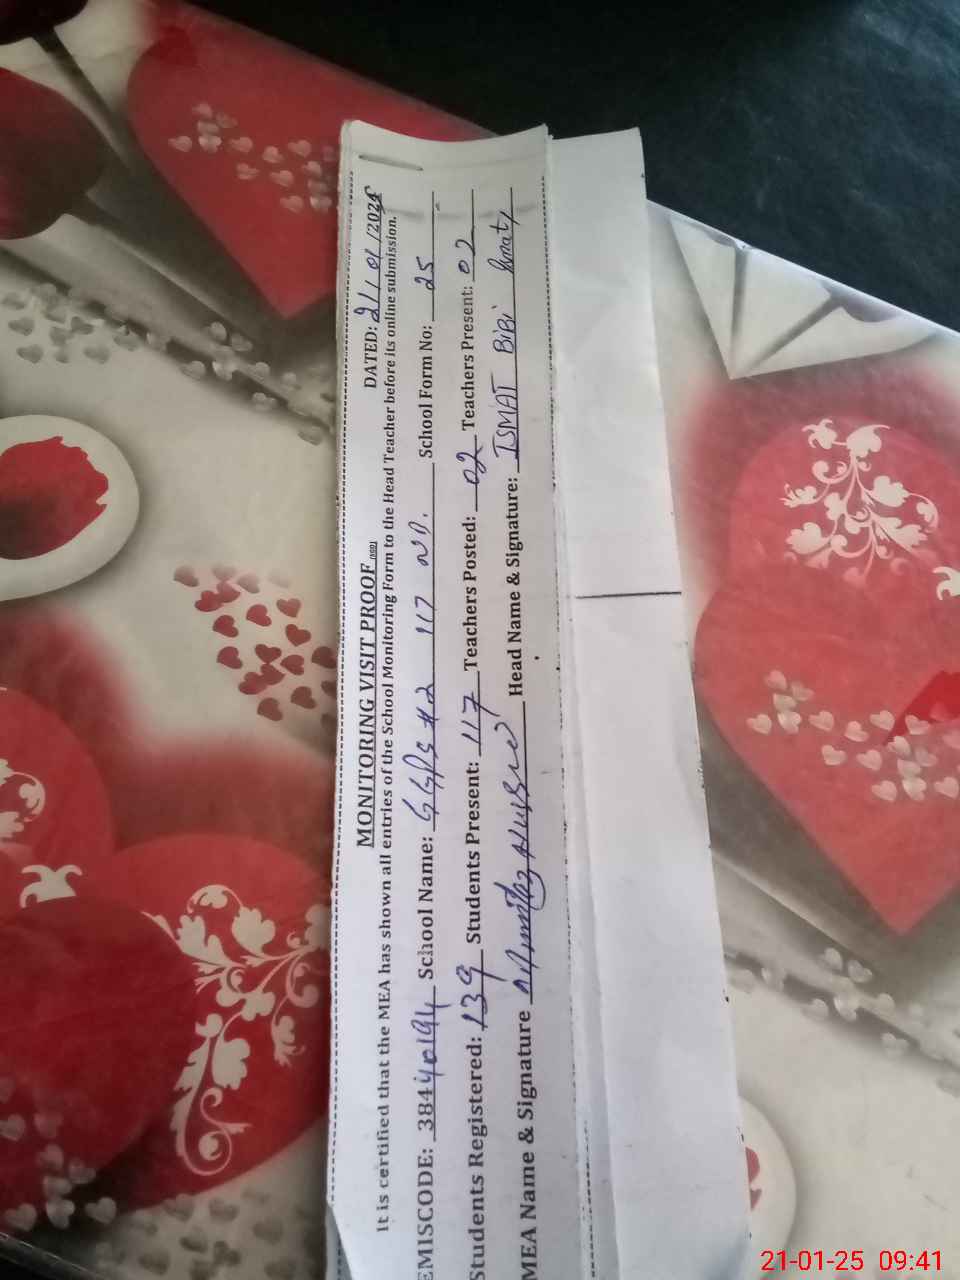 MONITORING VISIT PROOF (SSD) DATED: 21/01/2025
It is certified that the MEA has shown all entries of the School Monitoring Form to the Head Teacher before its online submission.
EMISCODE: 38440194 School Name: GGPS #2 117 School Form No: 25
Students Registered: 139 Students Present: 117 Teachers Posted: 02 Teachers Present: 02
MEA Name & Signature Head Name & Signature: ISMAT BiBi Ismat
21-01-25 09:41